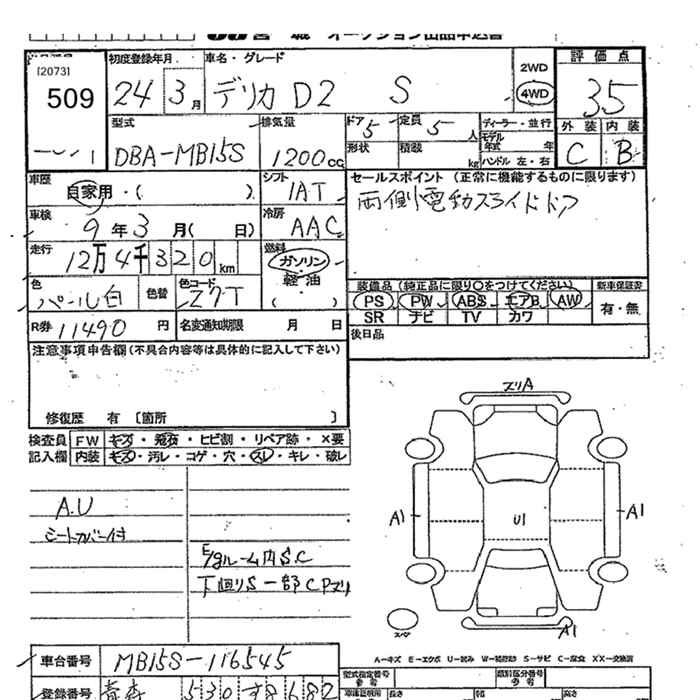 宮城 オークション出品申込書
[2073]
509
初度登録年月 車名・グレード
24 3月 デリカD2 S
2WD
4WD
評価点
3.5
型式 排気量 ドア 定員 ディーラー・並行
DBA-MB15S 1200cc 5 5人
形状 積載 kg
モデル年式 年
ハンドル 左・右
外装 内装
C B
車歴 シフト
自家用・( ) IAT
車検 冷房
9年3月( 日) AAC
走行 燃料
12万4千320km ガソリン
軽油
( )
色 色替 色コード
パール白 Z7T
R券 11490円 名変通知期限 月 日
セールスポイント (正常に機能するものに限ります)
両側電動スライドドア
装備品 (純正品に限り○をつけてください) 新車保証書
PS PW ABS エアB AW 有・無
SR ナビ TV カワ
後日品
注意事項申告欄 (不具合内容等は具体的に記入して下さい)
修復歴 有 [箇所 ]
検査員 FW キズ・飛石・ヒビ割・リペア跡・×要
記入欄 内装 キズ・汚レ・コゲ・穴・スレ・キレ・破レ
A.U
シートカバー付
E/gルーム内S.C
下廻りS一部CPズリ
ズリA
A1 U1 A1
A1
スペア
A-キズ E-エクボ U-凹み W-補修跡 S-サビ C-腐食 XX-交換済
車台番号 MB15S-116545
登録番号 青森 530 す 8682
型式指定番号 類別区分番号
参考 参考
長さ 幅 高さ